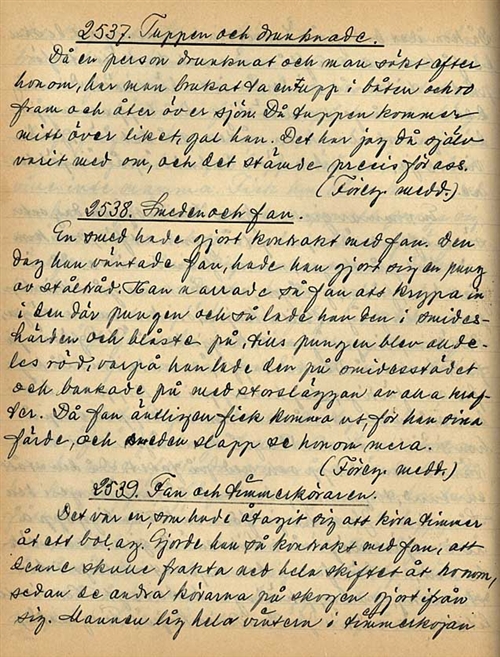 2537. Tuppen och drunknade.
Då en person drunknat och man sökt efter
honom, har man brukat ta en tupp i båten och ro
fram och åter över sjön. Då tuppen kommer
mitt över liket, gal han. Det har jag då själv
varit med om, och det stämde precis för oss.
(Föreg. medd.)
2538. Smeden och fan.
En smed hade gjort kontrakt med fan. Den
dag han väntade fan, hade han gjort sig en pung
av ståltråd. Han narrade så fan att krypa in
i den där pungen och så lade han den i smides-
härden och blåste på, tills pungen blev allde-
les röd, varpå han lade den på smidesstädet
och bankade på med storsläggan av alla kraf-
ter. Då fan äntligen fick komma ut, for han sina
färde, och smeden slapp se honom mera.
(Föreg. medd.)
2539. Fan och timmerköraren.
Det var en, som hade åtagit sig att köra timmer
åt ett bolag. Gjorde han så kontrakt med fan, att
denne skulle frakta ned hela skiftet åt honom,
sedan de andra körarna på skogen gjort ifrån
sig. Mannen låg hela vintern i timmerkojan